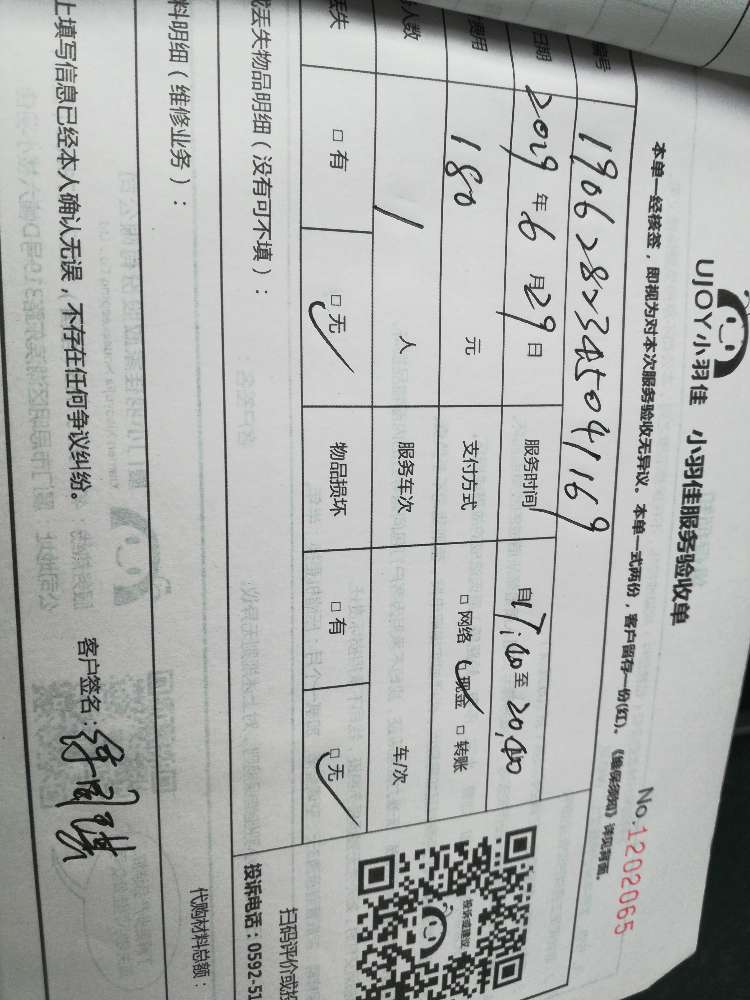 UJOY小羽佳 小羽佳服务验收单
No.1202065
本单一经核签，即视为对本次服务验收无异议。本单一式两份，客户留存一份(红)。《维保须知》详见背面。
编号 190628234504169
日期 2019年6月29日 服务时间 自17:00至20:00
费用 180 元 支付方式 □网络 □现金 □转账
人数 1 人 服务车次 车/次
丢失 □有 □无 物品损坏 □有 □无
丢失物品明细（没有可不填）：
料明细（维修业务）：
代购材料总额：
上填写信息已经本人确认无误，不存在任何争议纠纷。
客户签名：
投诉或建议
扫码评价或投
投诉电话：0592-51